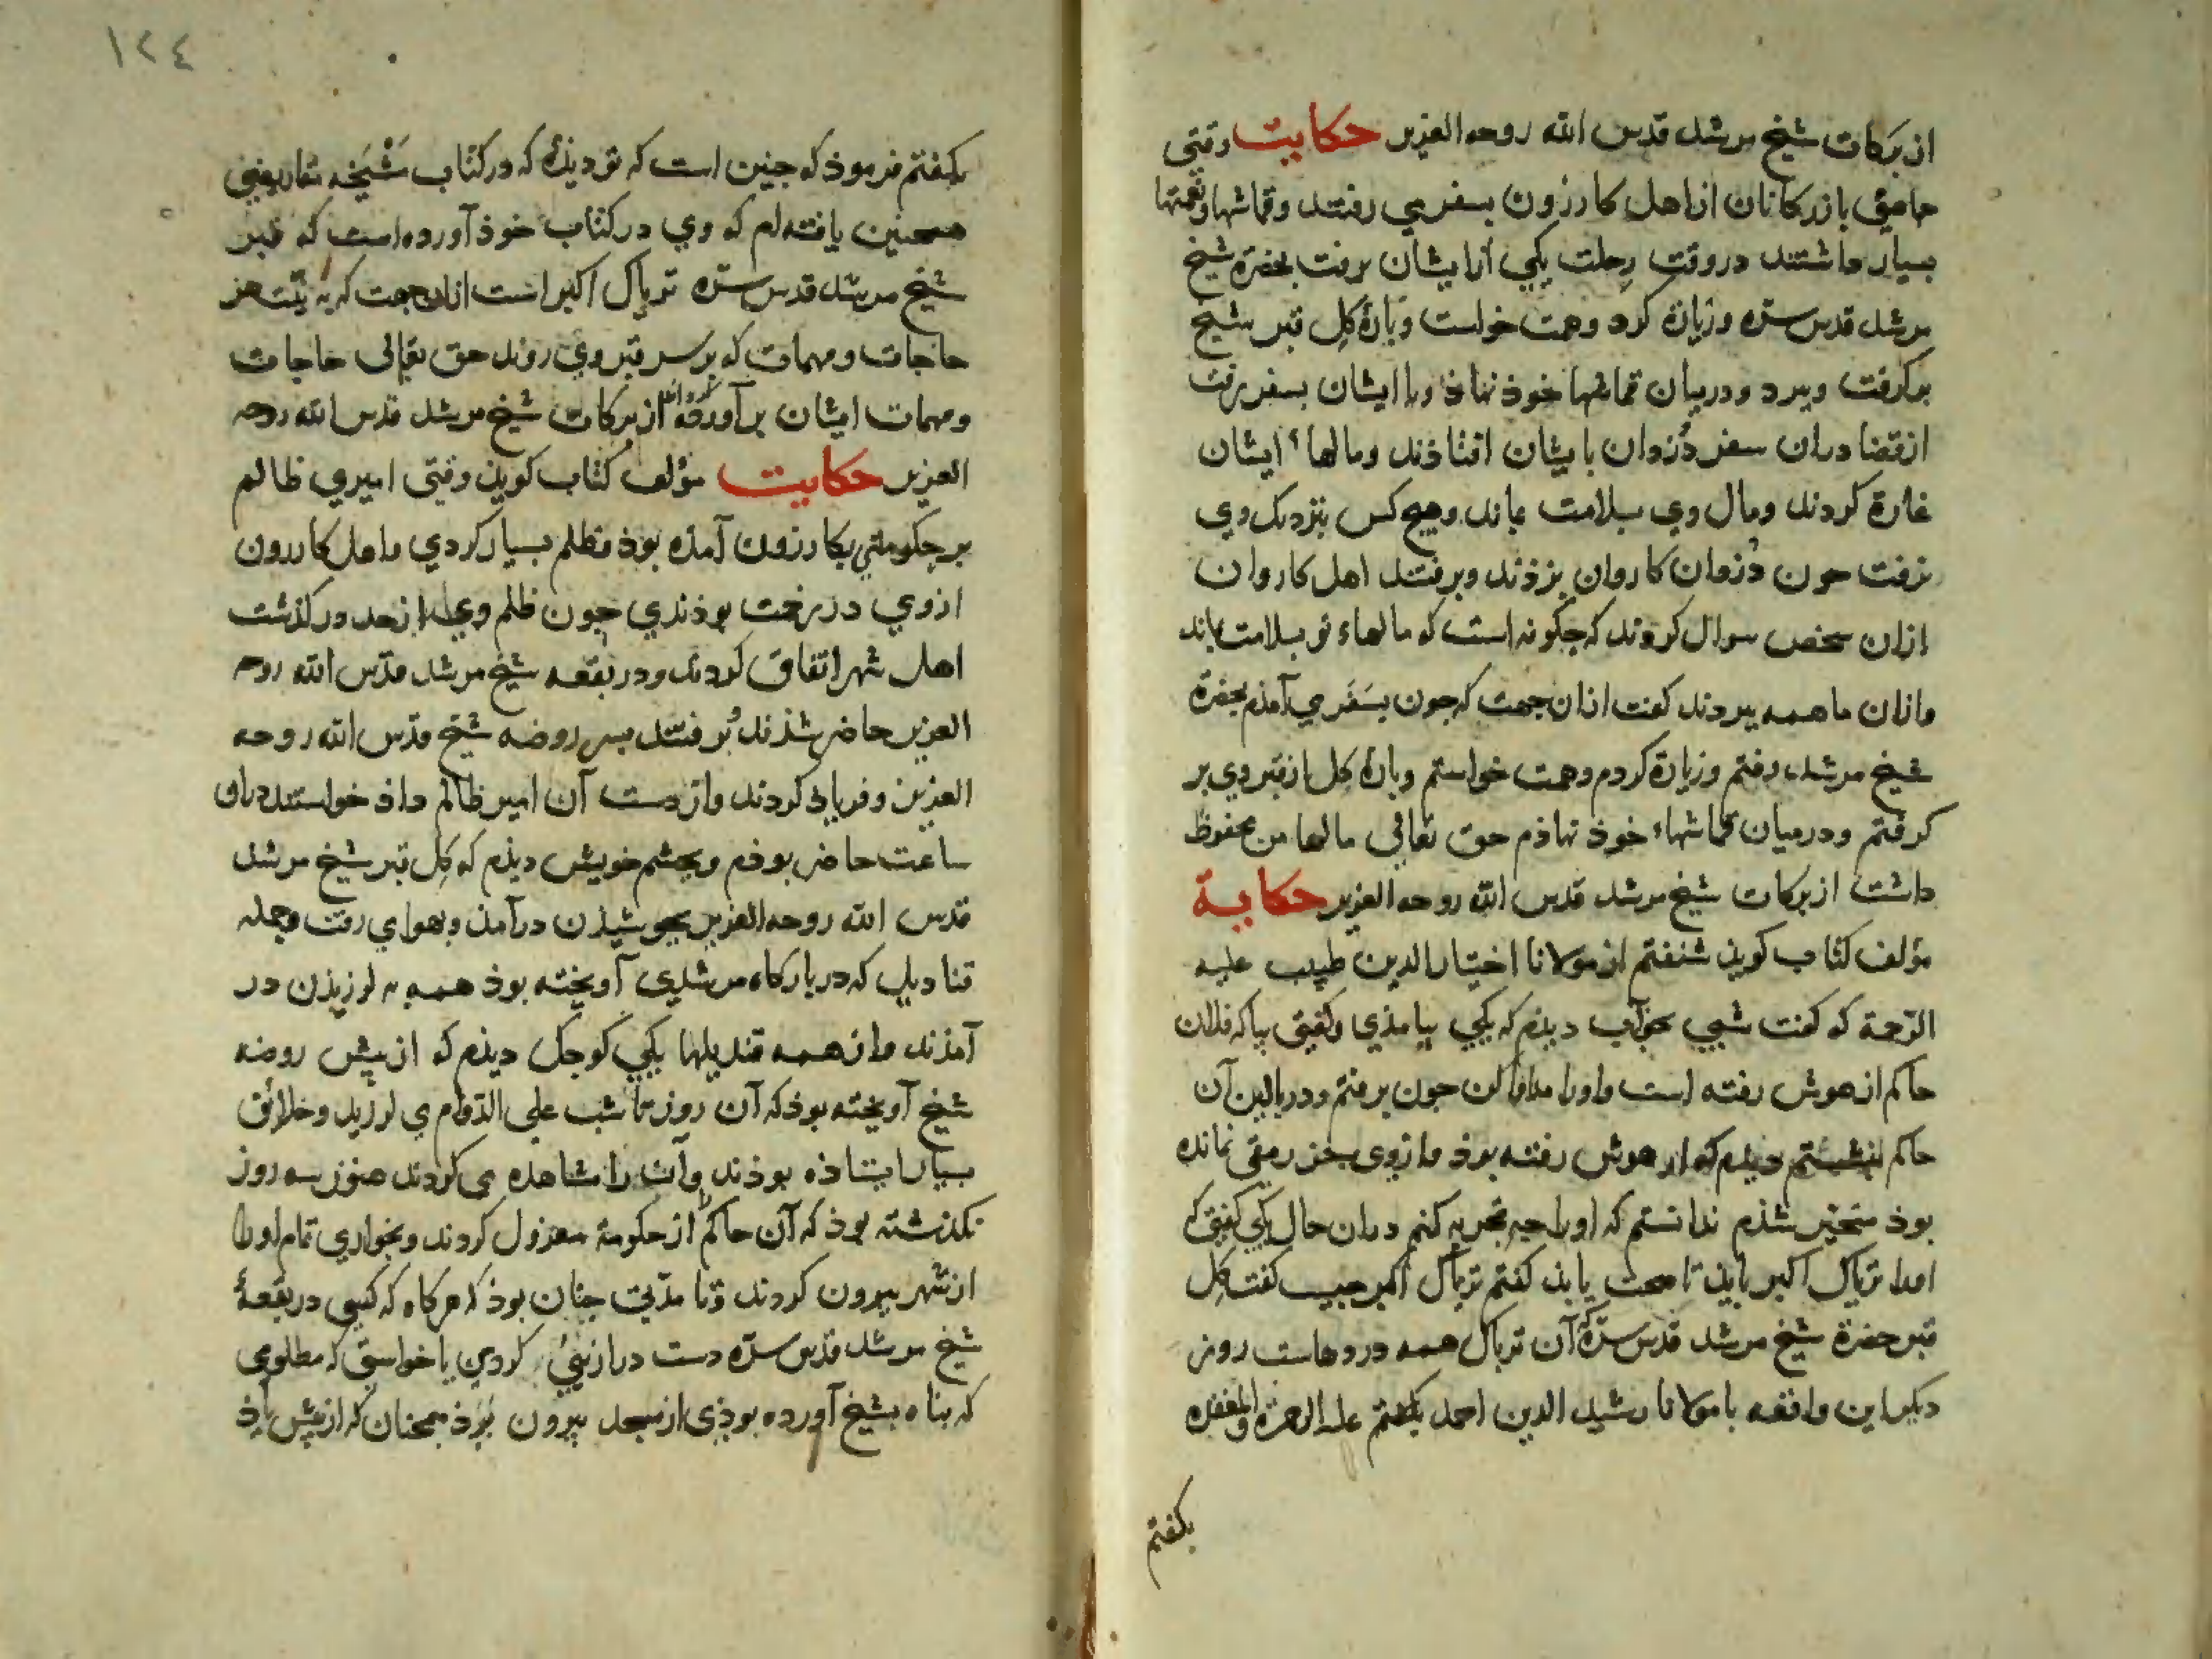 از برکات شیخ مرشد قدس الله روحه العزیز حکایت وقتی
جماعتی بازرکانان از اهل کازرون بسفر می رفتند وقماشها ونعمتها
بسیار داشتند در وقت رحلت یکی از ایشان برفت بحضرة شیخ
مرشد قدس سره وزیارة کرد وهمت خواست وپارۀ کل قبر شیخ
برکرفت وببرد ودر میان قماشها خوذ نهاذ وبا ایشان بسفر برفت
از قضا در ان سفر دزدان با یشان افتاذند ومالهاء ایشان
غارة کردند ومال وی بسلامت بماند وهیچ کس بنزدیک وی
نرفت جون دزدان کاروان بزدند وبرفتند اهل کاروان
ازان شخص سوال کردند که جکونه است که مالهاء تو بسلامت بماند
وازان ما همه ببردند کفت ازان جهت که جون بسفر می آمدم بحضرة
شیخ مرشد رفتم وزیارة کردم وهمت خواستم وپارۀ کل از قبر وی بر
کرفتم ودر میان قماشهاء خوذ نهاذم حق تعالی مالها من محفوظ
داشت از برکات شیخ مرشد قدس الله روحه العزیز حکایة
مؤلف کتاب کوید شنفتم از مولانا اختیار الدین طبیب علیه
الرحمة که کفت شبی بخواب دیذم که یکی بیامذی وکفتی بیا که فلان
حاکم از هوش رفته است واورا مداوا کن جون برفتم ودر بالین آن
حاکم بنشستم دیذم که از هوش رفته بوذ وازوی بجز رمقی نمانده
بوذ متحیر شذم ندانستم که اورا جه تجربه کنم در ان حال یکی کفتی که
اورا تریاک اکبر بایذ تا صحت یابذ کفتم تریاک اکبر جیست کفت کل
قبر حضرة شیخ مرشد قدس سره که آن تریاک همه دردهاست روز
دیکر این واقعه با مولانا رشید الدین احمد بکفتم علیه الرحمة والمغفره
بکفتم
١٢٤
بکفتم فرموذ که جنین است که تو دیذۀ که در کتاب مشیخه
همجنین یافته ام که وی در کتاب خوذ آورده است که قبر
شیخ مرشد قدس سره تریاک اکبر است ازان جهت که به نیت هر
حاجات ومهمات که بر سر قبر وی روند حق تعالی حاجات
ومهمات ایشان برآورده از برکات شیخ مرشد قدس الله روحه
العزیز حکایت مؤلف کتاب کوید وقتی امیری ظالم
بر حکومتی بکازرون آمده بوذ وظلم بسیار کردی واهل کازرون
ازوی در زحمت بوذندی جون ظلم وی از حد درکذشت
اهل شهر اتفاق کردند ودر بقعه شیخ مرشد قدس الله روحه
العزیز حاضر شذند وبرفتند بسر روضه شیخ قدس الله روحه
العزیز وفریاد کردند واز دست آن امیر ظالم داذ خواستند دران
ساعت حاضر بوذم وبجشم خویش دیذم که کل قبر شیخ مرشد
قدس الله روحه العزیز بجوشیذن درآمد وبهوا می رفت وجمله
قنادیل که در بارکاه مرشدی آویخته بوذ همه به لرزیذن در
آمذند واز همه قندیلها یکی کوجک دیذم که از پیش روضه
شیخ آویخته بوذ که آن روز تا شب علی الدوام می لرزید وخلائق
بسیار ایستاذه بوذند وآن را مشاهده می کردند هنوز سه روز
نکذشته بوذ که آن حاکم را از حکومة معزول کردند وبخواری تمام اورا
از شهر بیرون کردند وتا مدتی جنان بوذ که هر کاه که کسی در بقعۀ
شیخ مرشد قدس سره دست درازیی کردی یا خواستی که مظلومی
که پناه بشیخ آورده بوذی از مسجد بیرون برذ همجنان که از پیش یاذ